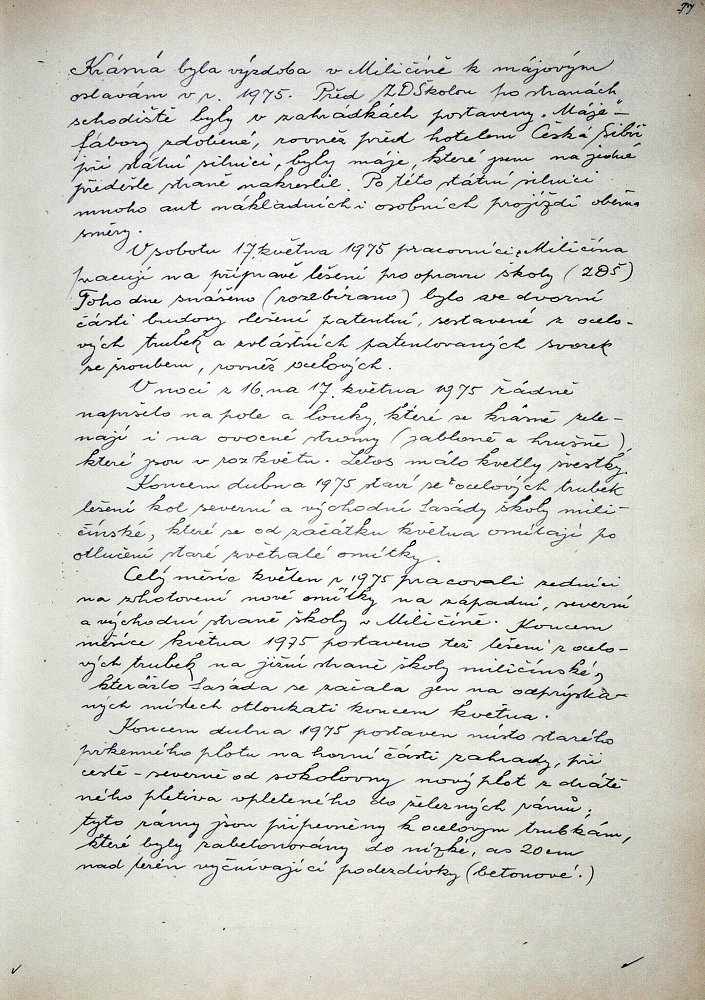 77
Krásná byla výzdoba v Miličíně k májovým
oslavám v r. 1975. Před ZDŠkolou po stranách
schodiště byly v zahrádkách postaveny "Máje"-
fábory zdobené, rovněž před hotelem Česká Sibiř
při státní silnici, byly máje, které jsem na jedné
předešlé straně nakreslil. Po této státní silnici
mnoho aut nákladních i osobních projíždí oběma
směry.
V sobotu 17. května 1975 pracovníci z Miličína
pracují na přípravě lešení pro opravu školy (ZDŠ)
Toho dne snášeno (rozebíráno) bylo ve dvorní
části budovy lešení patentní, sestavené z ocelo-
vých trubek a zvláštních patentovaných svorek
se šroubem, rovněž ocelových.
V noci z 16. na 17. května 1975 řádně
napršelo na pole a louky, které se krásně zele-
nají i na ovocné stromy (jabloně a hrušně),
které jsou v rozkvětu. Letos málo kvetly švestky.
Koncem dubna 1975 staví se z ocelových trubek
lešení kol severní a východní fasády školy mili-
čínské, které se od začátku května omítají po
otlučení staré zvětralé omítky.
Celý měsíc květen r 1975 pracovali zedníci
na zhotovení nové omítky na západní, severní
a východní straně školy v Miličíně. Koncem
měsíce května 1975 postaveno též lešení z ocelo-
vých trubek na jižní straně školy miličínské,
kterážto fasáda se začala jen na odprýska-
ných místech otloukati koncem května.
Koncem dubna 1975 postaven místo starého
prkenného plotu na horní části zahrady, při
cestě - severně od sokolovny nový plot z drátě-
ného pletiva vpleteného do železných rámů;
tyto rámy jsou připevněny k ocelovým trubkám,
které byly zabetonovány do nízké, as 20 cm
nad terén vyčnívající podezdívky (betonové.)